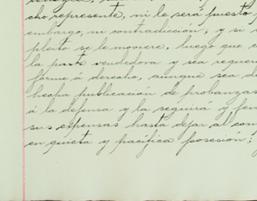 che represente, ni le será puesto
embargo, ni contradicción, y si
pleito se le moviere, luego que
la parte vendedora y sea requeri
forme á derecho, aunque sea d
hecha publicación de probanzas
á la defensa y la seguirá y fen
sus expensas hasta dejar al com
en quieta y pacífica posesión;